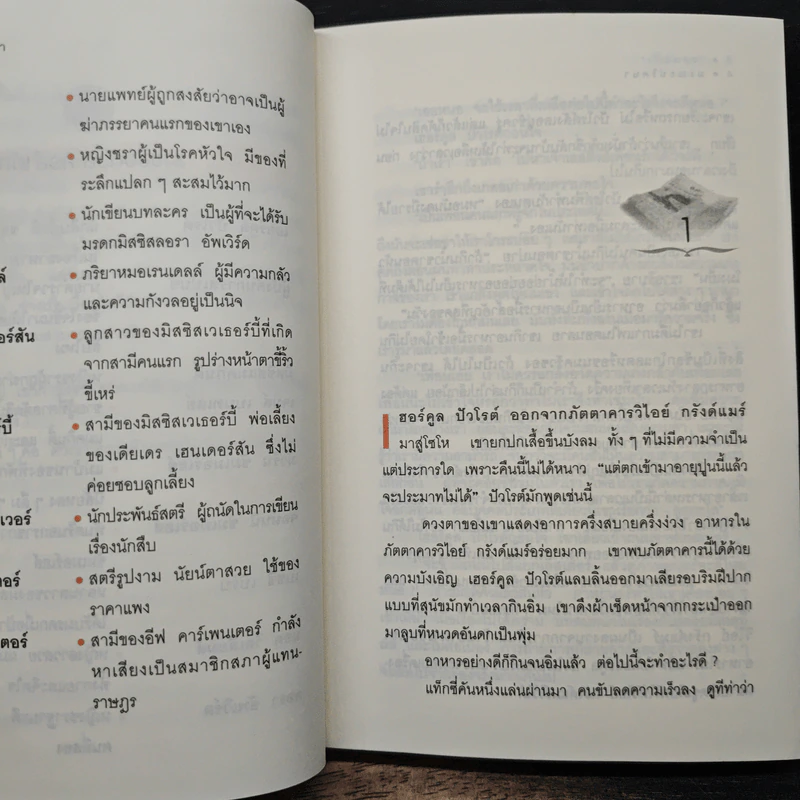 า
• นายแพทย์ผู้ถูกสงสัยว่าอาจเป็นผู้
ฆ่าภรรยาคนแรกของเขาเอง
• หญิงชราผู้เป็นโรคหัวใจ มีของที่
ระลึกแปลก ๆ สะสมไว้มาก
• นักเขียนบทละคร เป็นผู้ที่จะได้รับ
มรดกมิสซิสลอรา อัพเวิร์ด
ล์ • ภริยาหมอเรนเดลล์ ผู้มีความกลัว
และความกังวลอยู่เป็นนิจ
อร์สัน • ลูกสาวของมิสซิสเวเธอร์บี้ที่เกิด
จากสามีคนแรก รูปร่างหน้าตาขี้ริ้ว
ขี้เหร่
บี้ • สามีของมิสซิสเวเธอร์บี้ พ่อเลี้ยง
ของเดียเดร เฮนเดอร์สัน ซึ่งไม่
ค่อยชอบลูกเลี้ยง
เวอร์ • นักประพันธ์สตรี ผู้ถนัดในการเขียน
เรื่องนักสืบ
ตอร์ • สตรีรูปงาม นัยน์ตาสวย ใช้ของ
ราคาแพง
ตอร์ • สามีของอีฟ คาร์เพนเตอร์ กำลัง
หาเสียงเป็นสมาชิกสภาผู้แทน-
ราษฎร
1
ฮอร์คูล ปัวโรต์ ออกจากภัตตาคารวิไอย์ กรังด์แมร์
มาสู่โซโห เขายกปกเสื้อขึ้นบังลม ทั้ง ๆ ที่ไม่มีความจำเป็น
แต่ประการใด เพราะคืนนี้ไม่ได้หนาว “แต่ตกเข้ามาอายุปูนนี้แล้ว
จะประมาทไม่ได้” ปัวโรต์มักพูดเช่นนี้
ดวงตาของเขาแสดงอาการครึ่งสบายครึ่งง่วง อาหารใน
ภัตตาคารวิไอย์ กรังด์แมร์อร่อยมาก เขาพบภัตตาคารนี้ได้ด้วย
ความบังเอิญ เฮอร์คูล ปัวโรต์แลบลิ้นออกมาเลียรอบริมฝีปาก
แบบที่สุนัขมักทำเวลากินอิ่ม เขาดึงผ้าเช็ดหน้าจากกระเป๋าออก
มาลูบที่หนวดอันดกเป็นพุ่ม
อาหารอย่างดีก็กินจนอิ่มแล้ว ต่อไปนี้จะทำอะไรดี ?
แท็กซี่คันหนึ่งแล่นผ่านมา คนขับลดความเร็วลง ดูทีท่าว่า